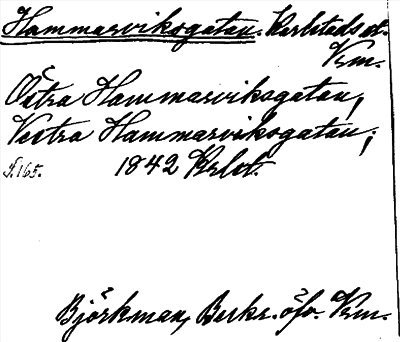 Hammarviksgatan. Karlstads st.
Vrm.
Östra Hammarviksgatan,
Vestra Hammarviksgatan;
S. 165. 1842 Krlst.
Björkman, Beskr. öfv. Vrm.